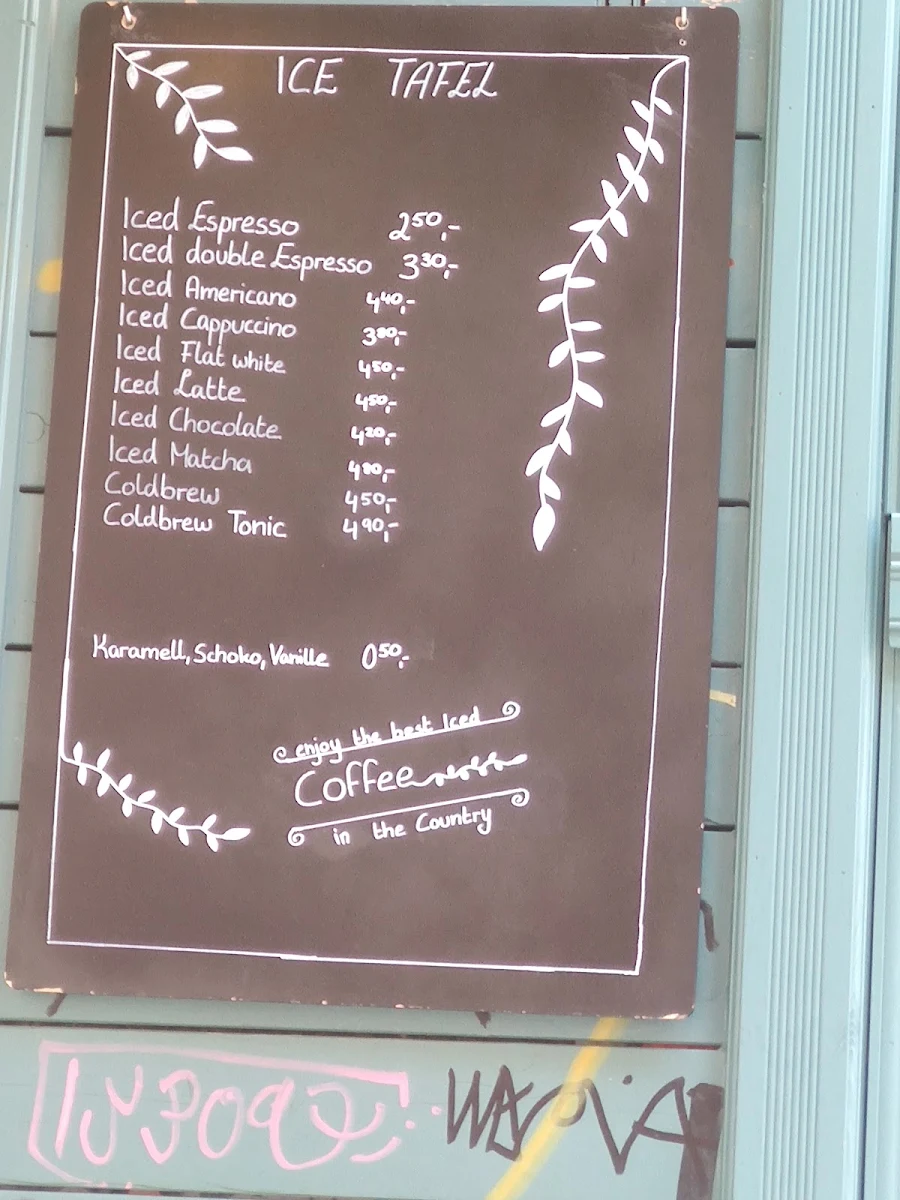 ICE TAFEL
Iced Espresso 2⁵⁰,-
Iced double Espresso 3³⁰,-
Iced Americano 4⁴⁰,-
Iced Cappuccino 3⁸⁰,-
Iced Flat white 4⁵⁰,-
Iced Latte 4⁵⁰,-
Iced Chocolate 4²⁰,-
Iced Matcha 4⁸⁰,-
Coldbrew 4⁵⁰,-
Coldbrew Tonic 4⁹⁰,-
Karamell, Schoko, Vanille 0⁵⁰,-
enjoy the best Iced
Coffee
in the Country